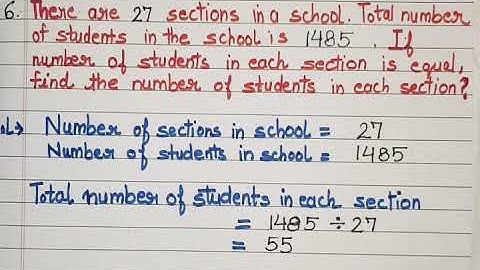 6. There are 27 sections in a school. Total number
of students in the school is 1485 . If
number of students in each section is equal,
find the number of students in each section?
ol→ Number of sections in school = 27
Number of students in school = 1485
Total number of students in each section
= 1485 ÷ 27
= 55